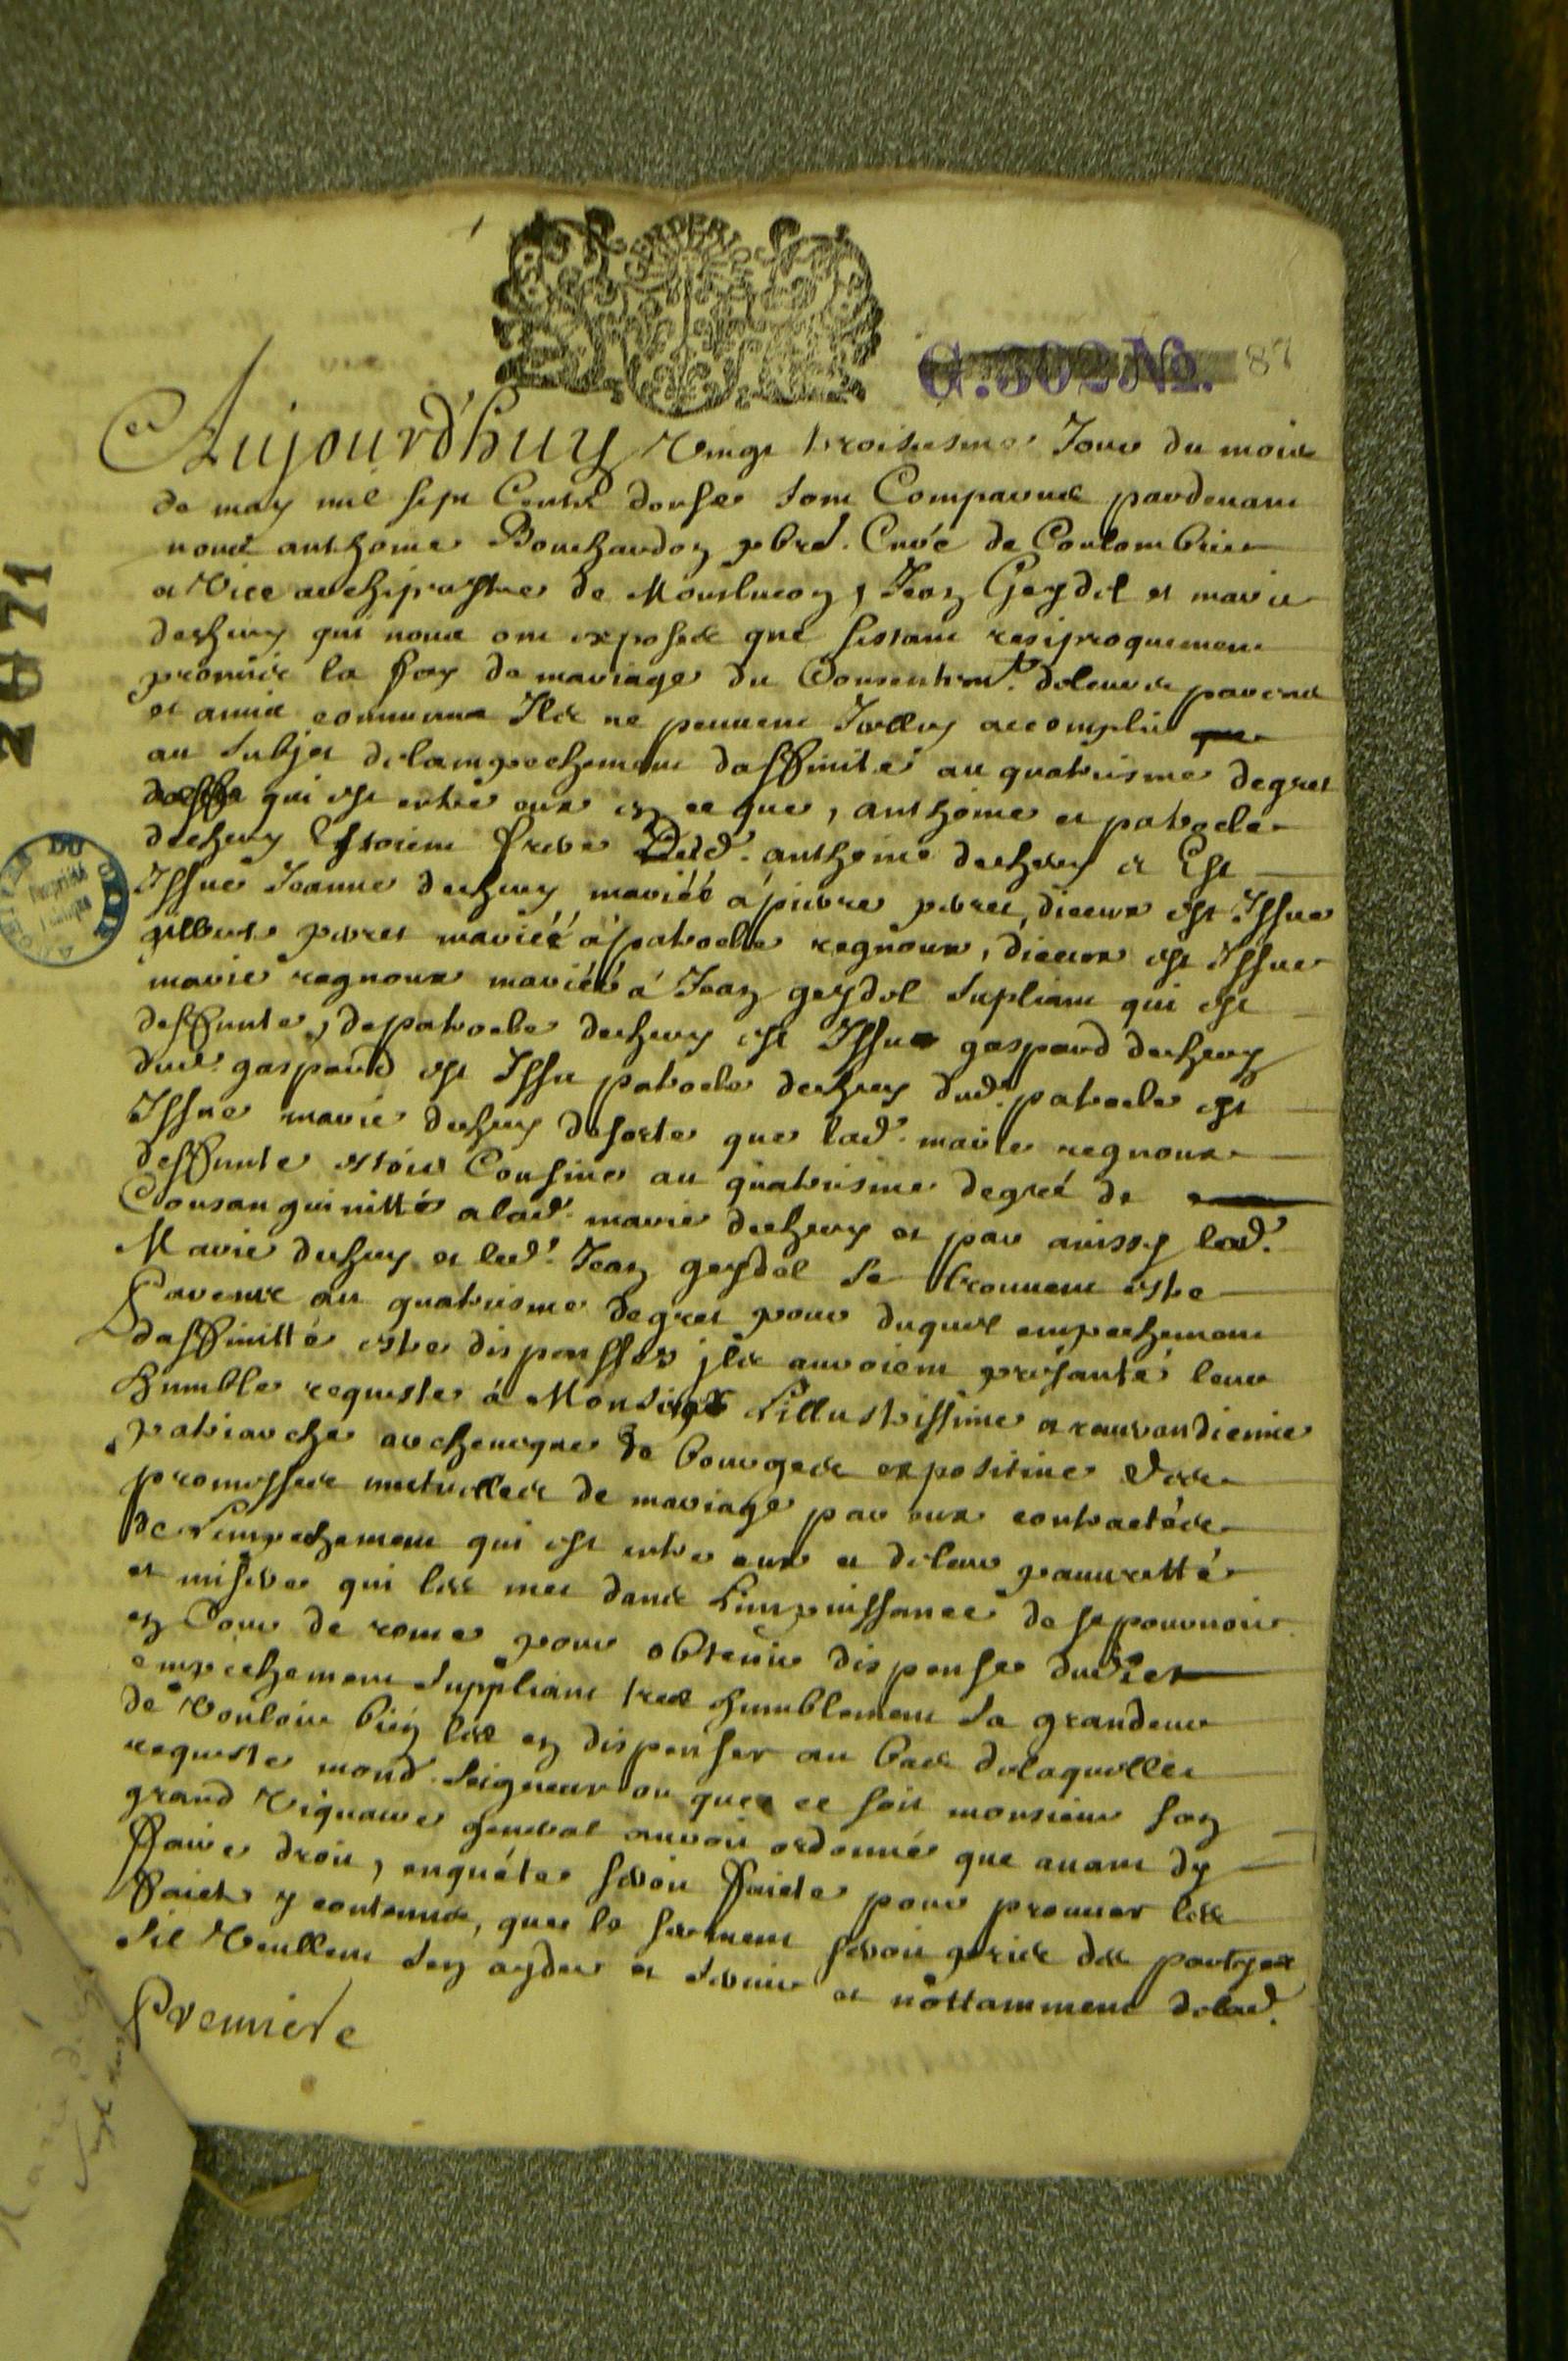 GENDER
G.302 No. 87
2G 71
Aujourd'huy vingt troisiesme Jour du mois
de may mil sept Cents douse sont Comparus pardevant
nous anthoine Bouchardon pbre. Curé de Coulombier
et Vice archiprestre de Monlucon, Jean Geydel et marie
dechery qui nous ont exposés que sestant resiproquement
promis la foy de mariage du Consentemt. deleurs parens
et amis communs Ils ne peuvent Icelluy accomplir
au subjet delampechement daffinité au quatriesme degret
qui est entre eux en ce que, anthoine et patrocle
dechery Estoient frere Dud. anthoine dechery et Est
Issue Jeanne dechery mariéé à pierre perret, diceux est Issue
gilberte perret mariéé à patrocle regnoux, diceux est Issue
marie regnoux mariéé à Jean geydel supliant qui est
deffunte, depatrocle dechery est Issu gaspard dechery
dud. gaspard est Issu patrocle dechery dud. patrocle est
Issue marie dechery desorte que lad. marie regnoux
deffunte estoit Cousine au quatriesme degré de
Consanguinitté alad. marie dechery et par ainssy lad.
Marie dechery et led. Jean geydel se trouvent estre
Parents au quatriesme degret pour duquel empechement
daffinitté estre dispensses jls auroient présanté leur
humble requeste à Monseigr Lillustrissime et reverendissime
patriarche archevesque de bourges expositive des
promesses mutuelles de mariage par eux contractées
de Lempechement qui est entre eux et deleur pauvretté
et misere qui les met dans Limpuissance de se pourvoir
en Cour de rome pour obtenir dispense dudict
empechement suppliant tres humblement sa grandeur
de vouloir bien les en dispenser au bas delaquelle
requeste mond. seigneur ou que ce soit monsieur son
grand viguaire general auroit ordonné que avant dy
faire droit, enquéte seroit faicte pour prouver les
faicts y contenus, que le serment seroit pris des partyes
sil veullent sen ayder et servir et nottamment delad.
Premiere